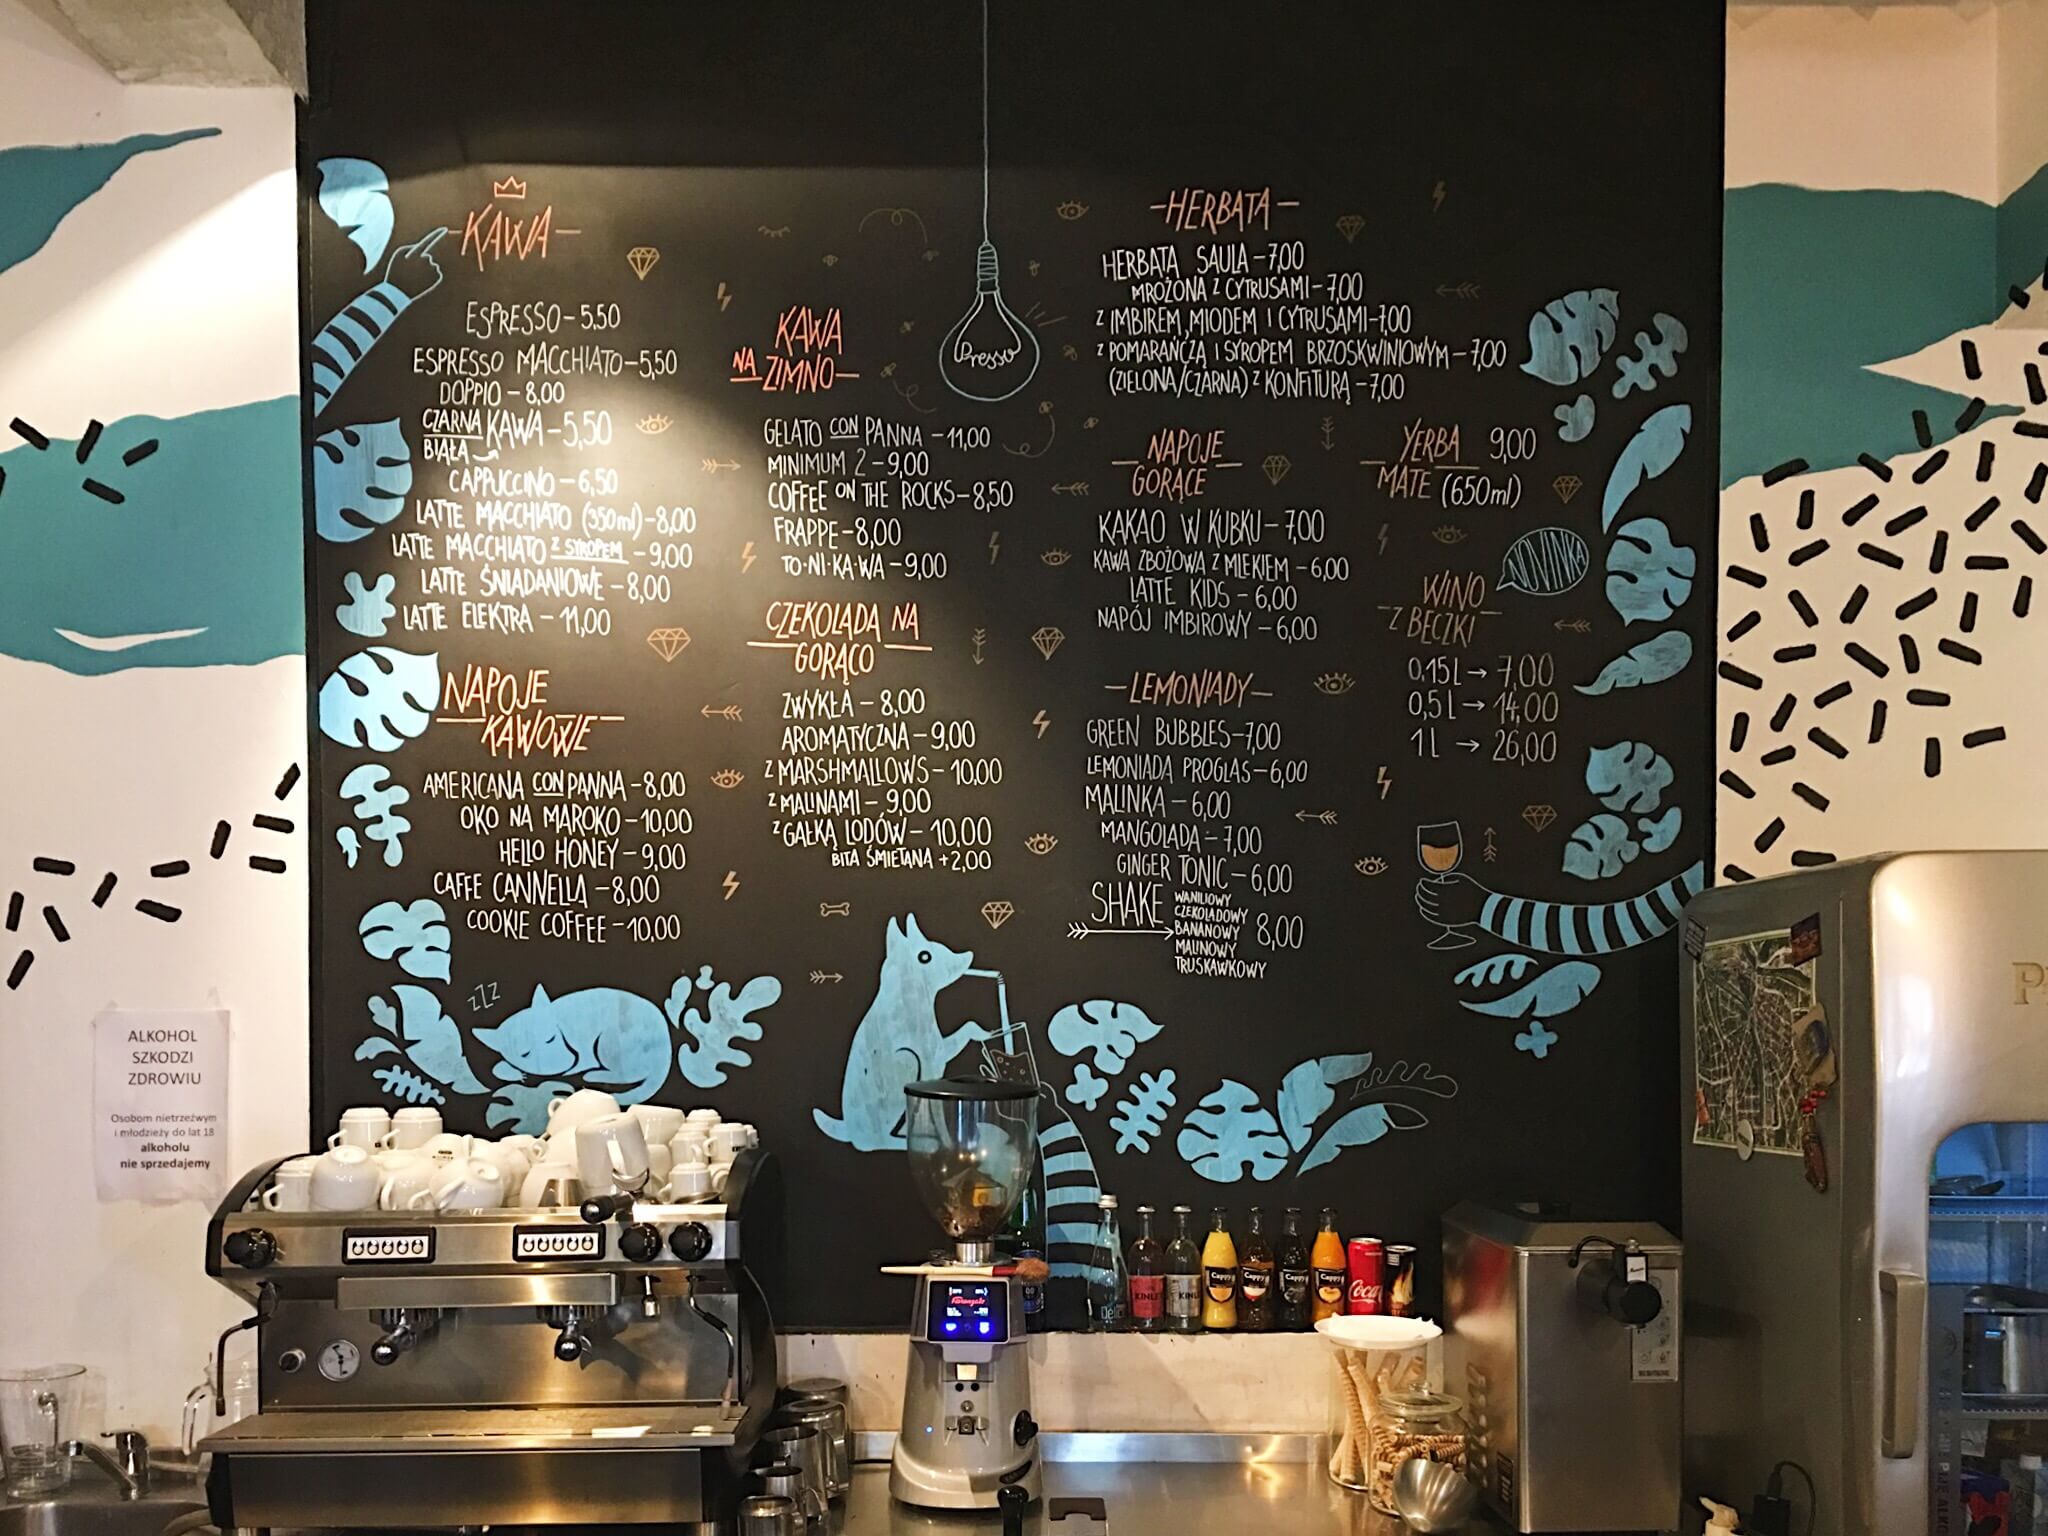 KAWA
ESPRESSO - 5,50
ESPRESSO MACCHIATO - 5,50
DOPPIO - 8,00
CZARNA KAWA - 5,50
BIAŁA
CAPPUCCINO - 6,50
LATTE MACCHIATO (350ml) - 8,00
LATTE MACCHIATO Z SYROPEM - 9,00
LATTE ŚNIADANIOWE - 8,00
LATTE ELEKTRA - 11,00
NAPOJE
KAWOWE
AMERICANA CON PANNA - 8,00
OKO NA MAROKO - 10,00
HELLO HONEY - 9,00
CAFFE CANNELLA - 8,00
COOKIE COFFEE - 10,00
zZZ
KAWA
NA ZIMNO
GELATO CON PANNA - 11,00
MINIMUM 2 - 9,00
COFFEE ON THE ROCKS - 8,50
FRAPPE - 8,00
TO·NI·KA·WA - 9,00
CZEKOLADA NA
GORĄCO
ZWYKŁA - 8,00
AROMATYCZNA - 9,00
Z MARSHMALLOWS - 10,00
Z MALINAMI - 9,00
Z GAŁKĄ LODÓW - 10,00
BITA ŚMIETANA +2,00
Presso
- HERBATA -
HERBATA SAULA - 7,00
MROŻONA Z CYTRUSAMI - 7,00
Z IMBIREM, MIODEM I CYTRUSAMI - 7,00
Z POMARAŃCZĄ I SYROPEM BRZOSKWINIOWYM - 7,00
(ZIELONA/CZARNA) Z KONFITURĄ - 7,00
NAPOJE
GORĄCE
KAKAO W KUBKU - 7,00
KAWA ZBOŻOWA Z MLEKIEM - 6,00
LATTE KIDS - 6,00
NAPÓJ IMBIROWY - 6,00
- LEMONIADY -
GREEN BUBBLES - 7,00
LEMONIADA PROGLAS - 6,00
MALINKA - 6,00
MANGOLADA - 7,00
GINGER TONIC - 6,00
SHAKE
WANILIOWY
CZEKOLADOWY
BANANOWY
MALINOWY
TRUSKAWKOWY
8,00
YERBA 9,00
MATE (650ml)
NOVINKA
WINO
Z BECZKI
0,15 l → 7,00
0,5 l → 14,00
1 l → 26,00
ALKOHOL
SZKODZI
ZDROWIU
Osobom nietrzeźwym
i młodzieży do lat 18
alkoholu
nie sprzedajemy
KINLEY
KINLEY
Cappy
Cappy
Cappy
Cappy
Coca